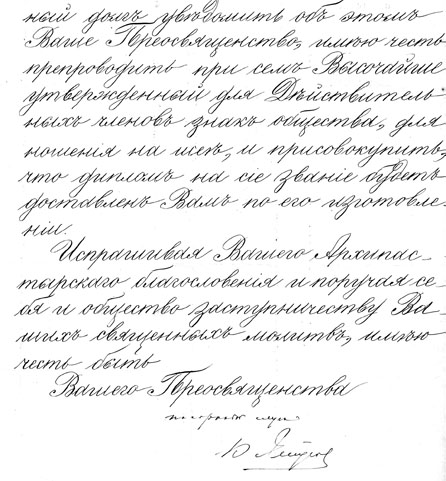 ный долгъ увѣдомить объ этомъ
Ваше Преосвященство, имѣю честь
препроводить при семъ Высочайше
утвержденный для Дѣйствитель-
ныхъ членовъ знакъ общества, для
ношенія на шеѣ, и присовокупить,
что дипломъ на сіе званіе будетъ
доставленъ Вамъ по его изготовле-
ніи.
Испрашивая Вашего Архипас-
тырскаго благословенія и поручая се-
бя и общество заступничеству Ва-
шихъ священныхъ молитвъ, имѣю
честь быть
Вашего Преосвященства